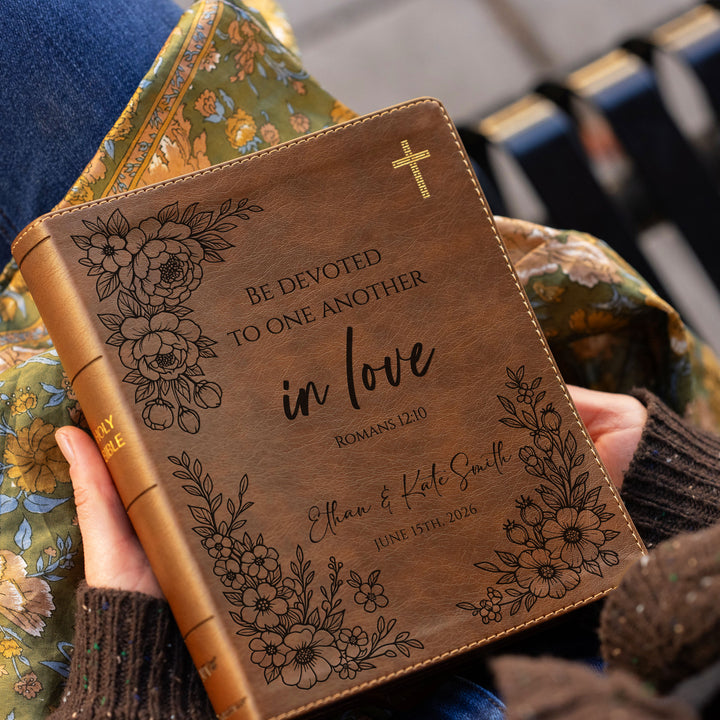 BE DEVOTED
TO ONE ANOTHER
in love
ROMANS 12:10
Ethan & Kate Smith
JUNE 15TH, 2026
HOLY
BIBLE